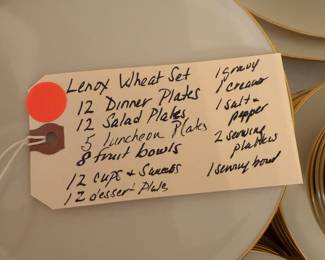 Lenox Wheat Set
12 Dinner Plates
12 Salad Plates
5 Luncheon Plates
8 fruit bowls
12 cups & Saucers
12 dessert Plate
1 gravy
1 creamer
1 salt &
pepper
2 serving
platters
1 serving bowl